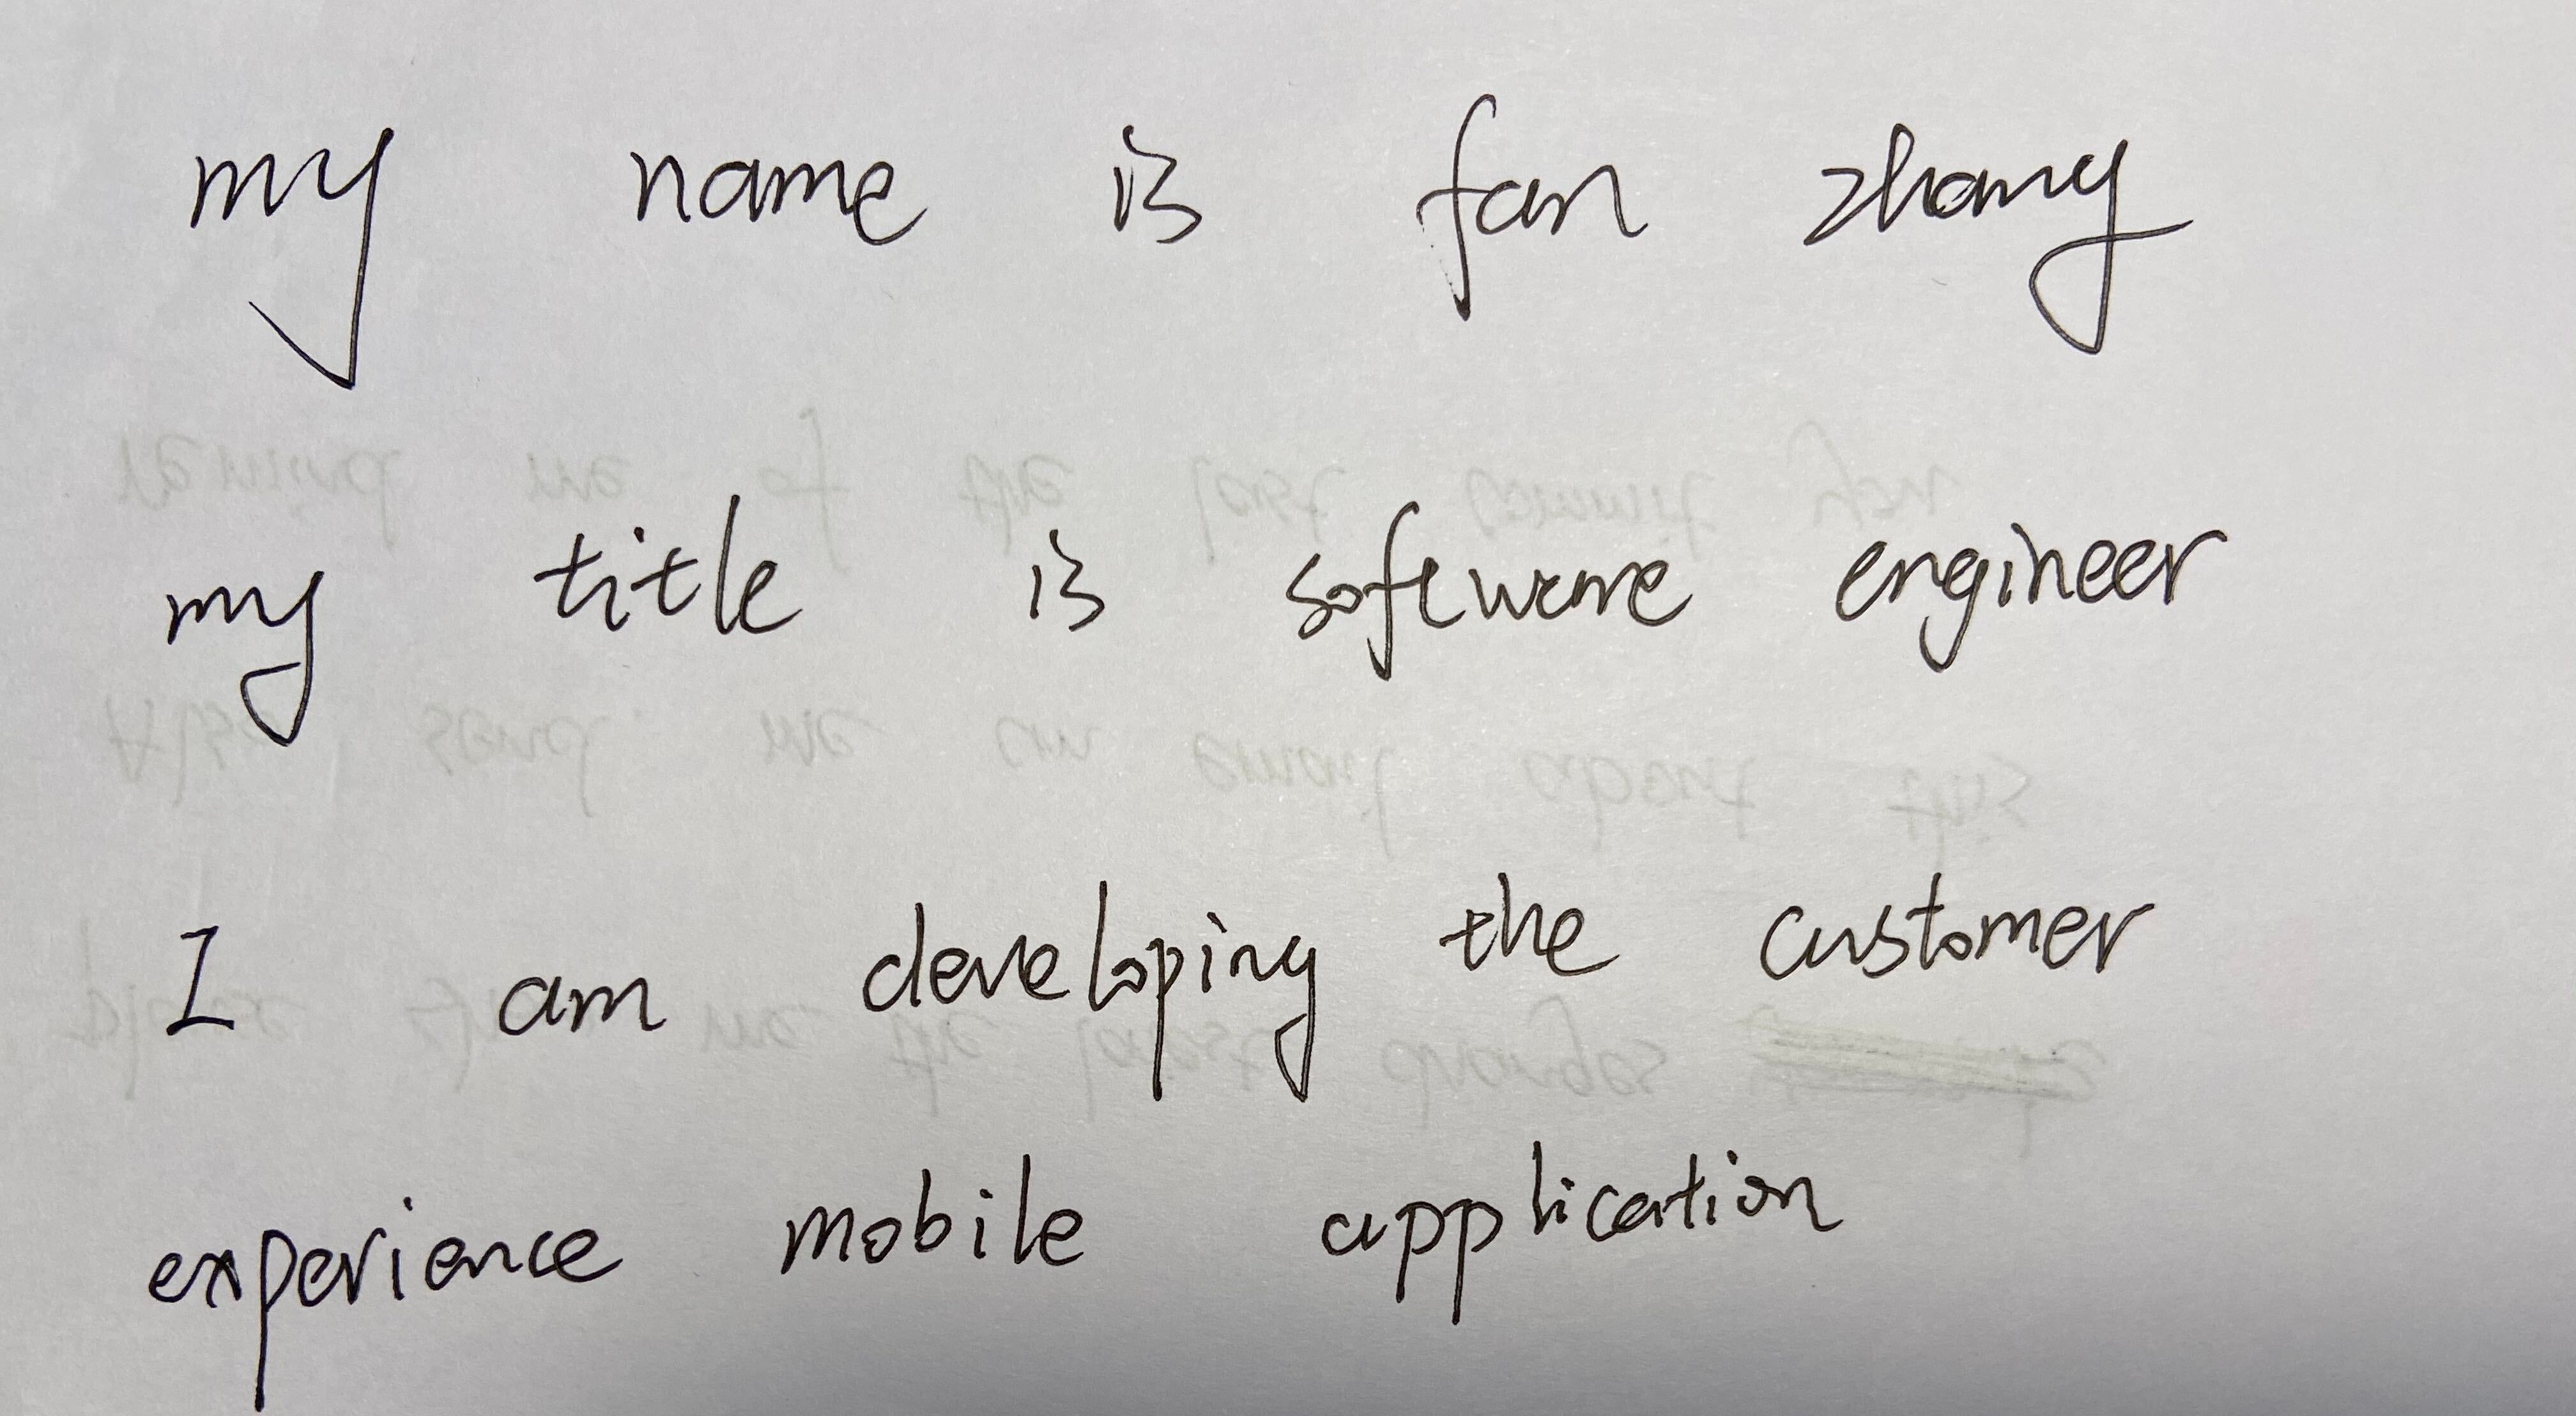 my name is fan zhang
my title is software engineer
I am developing the customer
experience mobile application